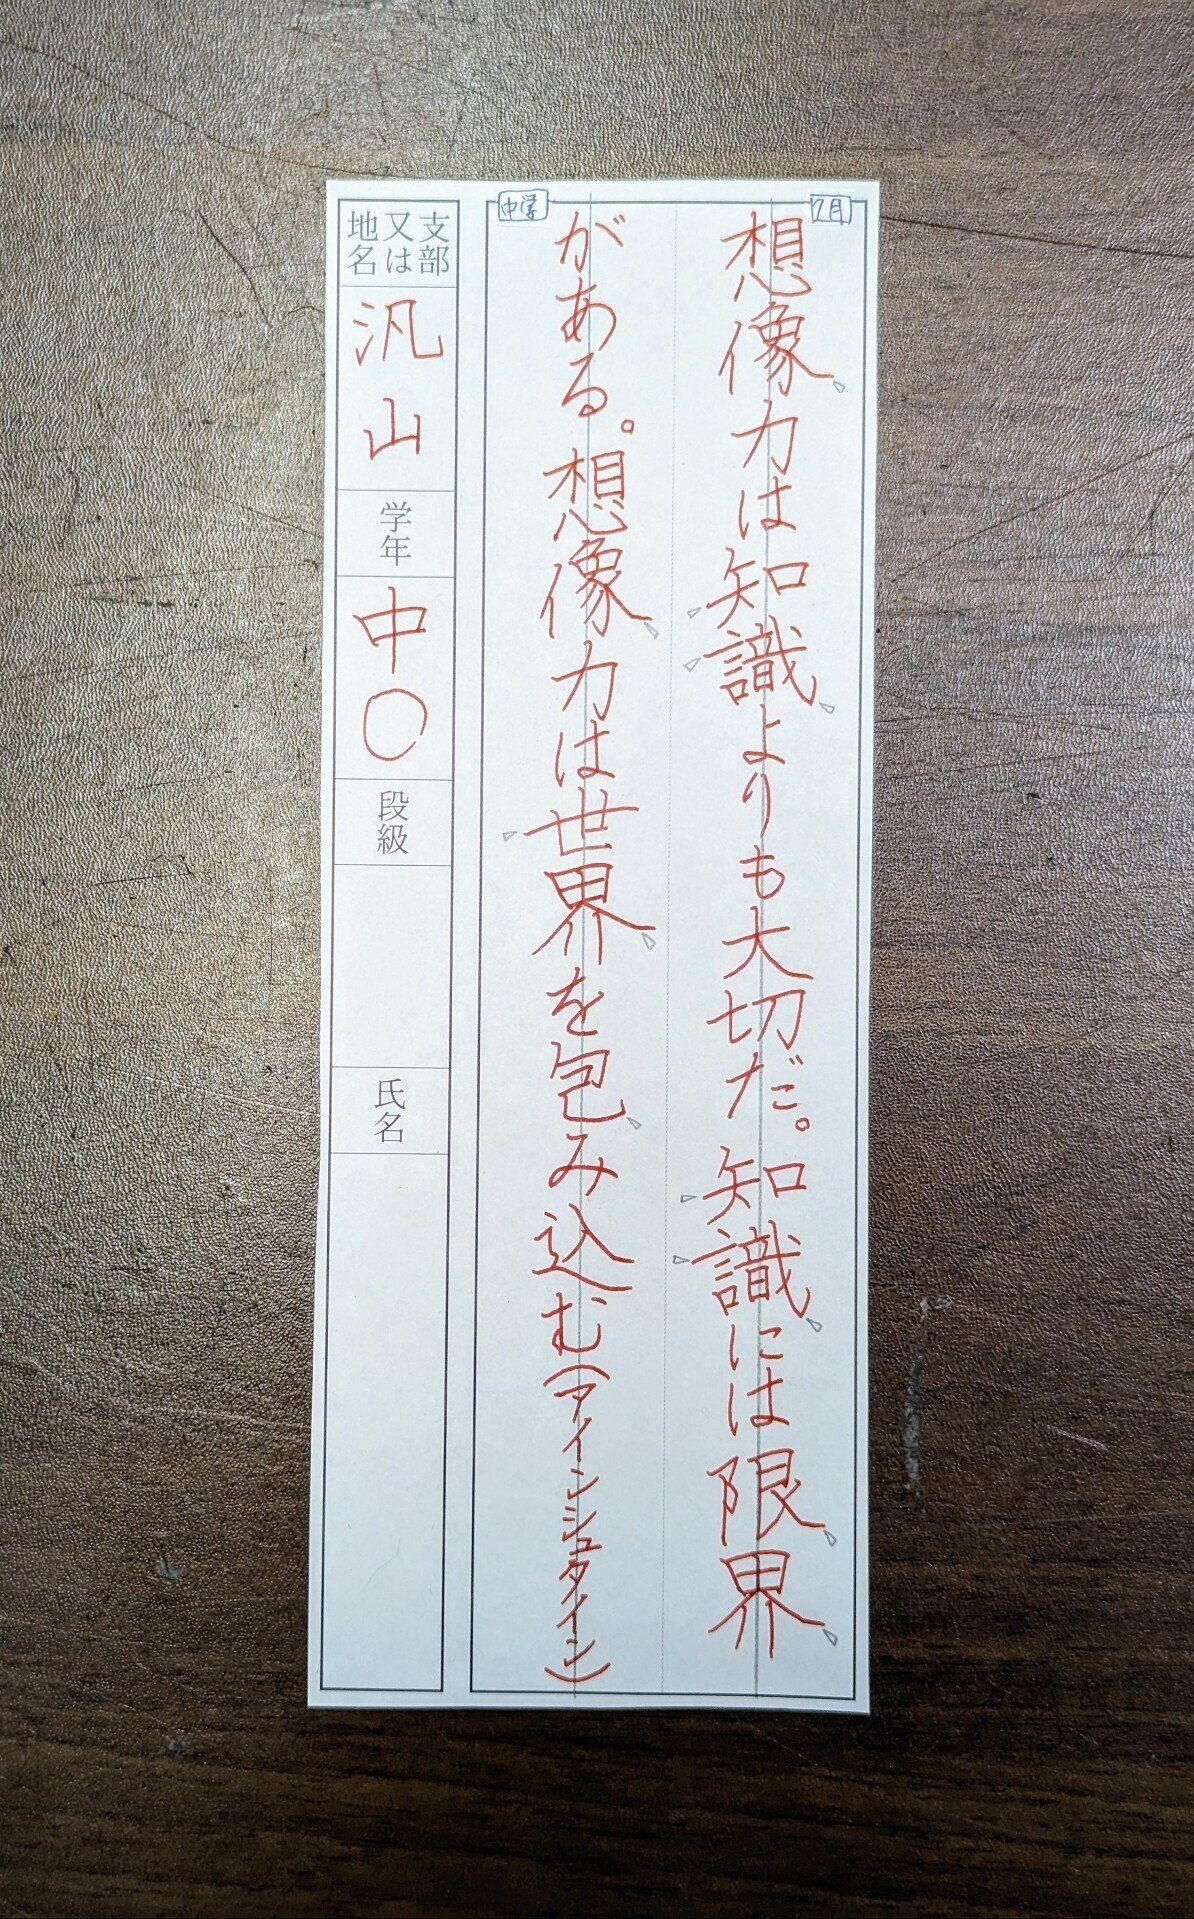 7月
想像力は知識よりも大切だ。知識には限界
中学
がある。想像力は世界を包み込む(アインシュタイン)
支部
又は
地名
汎山
学年
中〇
段級
氏名